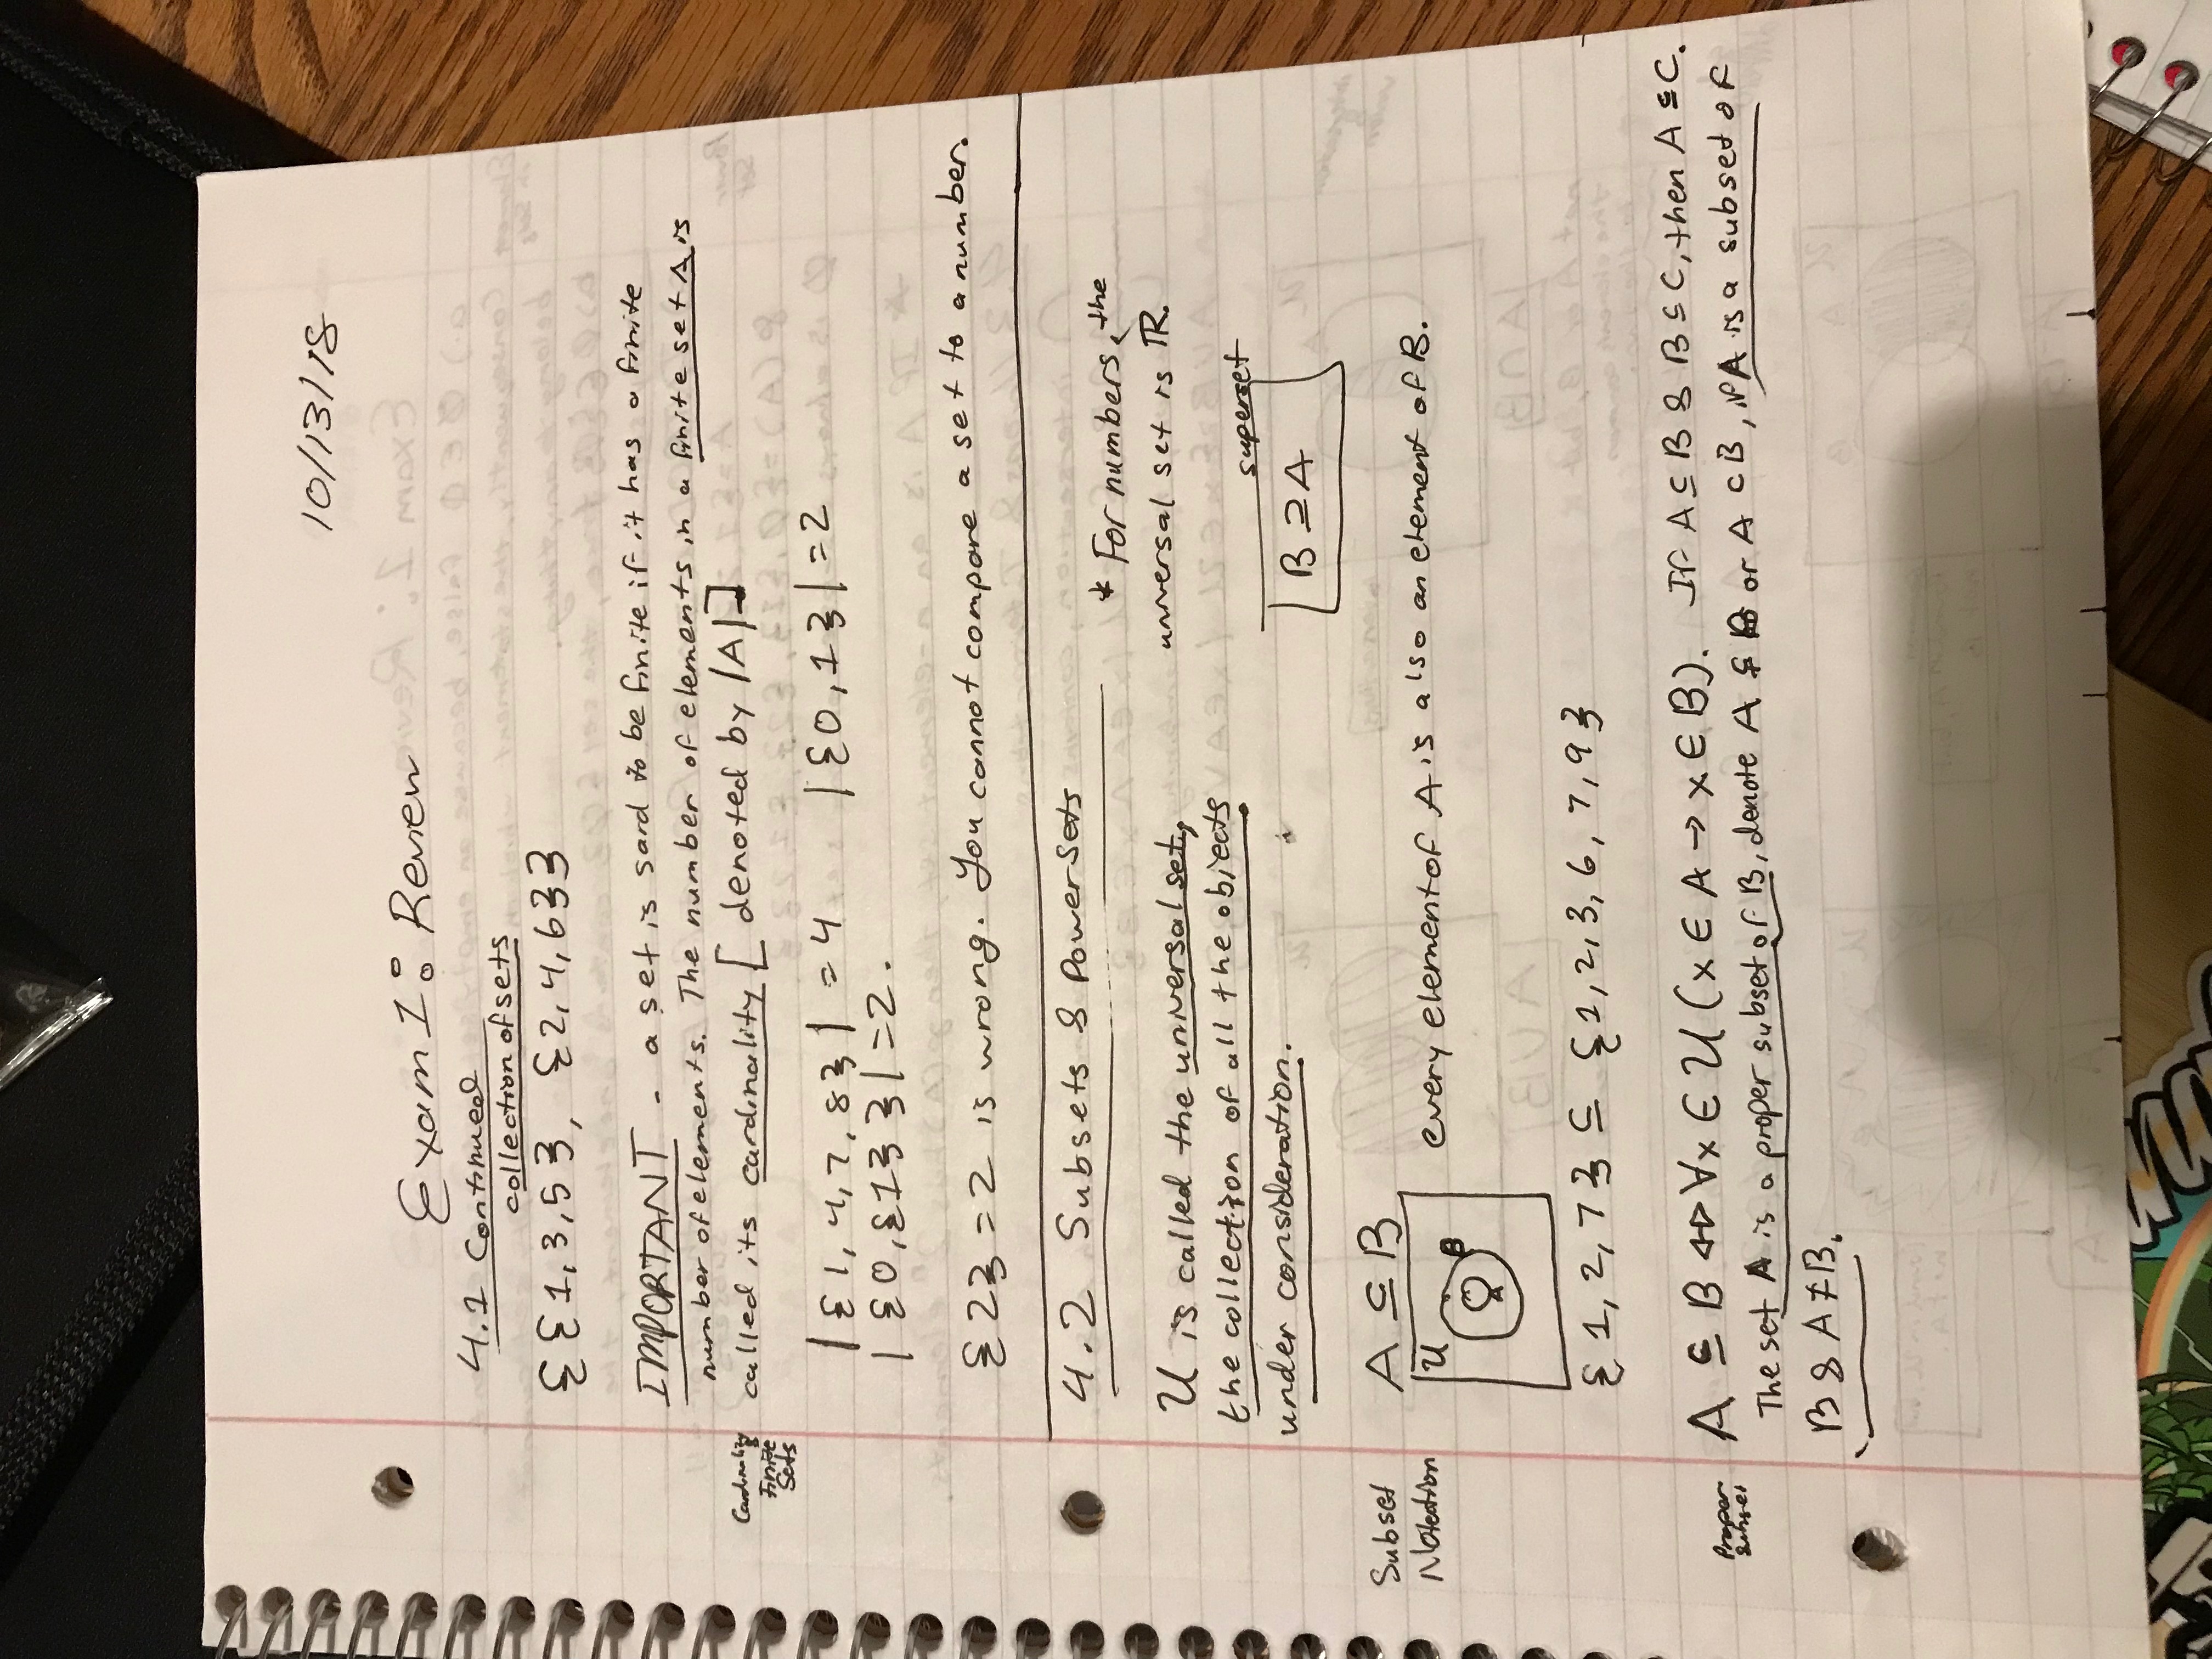 10/13/18
Exam 1: Review
4.1 Continued
collection of sets
{{1,3,5}, {2,4,6}}
IMPORTANT - a set is said to be finite if it has a finite
number of elements. The number of elements in a finite set A is
Cardinality & Finite Sets
called its cardinality [denoted by |A|]
|{1,4,7,8}| = 4 |{0,1}| = 2
|{0,{1}}| = 2.
{2} = 2 is wrong. You cannot compare a set to a number.
4.2 Subsets & Power Sets
* For numbers, the
universal set is ℝ.
U is called the universal set,
the collection of all the objects
under consideration.
superset
B ⊇ A
Subset
Notation
A ⊆ B
U
B
A
every element of A is also an element of B.
{1,2,7} ⊆ {1,2,3,6,7,9}
A ⊆ B ⟺ ∀x ∈ U (x ∈ A → x ∈ B). If A ⊆ B & B ⊆ C, then A ⊆ C.
Proper
subset
The set A is a proper subset of B, denote A ⊊ B or A ⊂ B, if A is a subset of
B & A ≠ B.